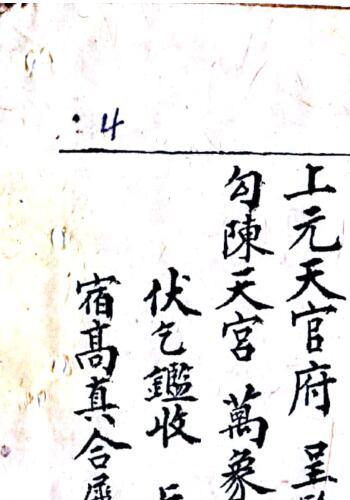 4
上元天官府 呈
勾陳天宮 萬象
伏乞鑑收
宿髙真合